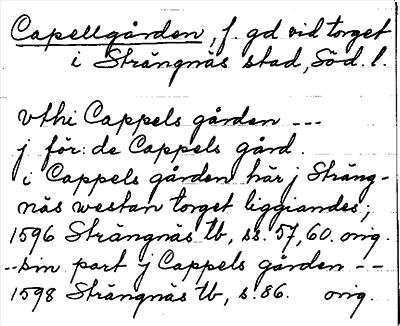 Capellgården, f. gd vid torget
i Strängnäs stad, Söd. l.
vthi Cappels gården ---
j för: de Cappels gård.
i Cappels gården här j Sträng-
näs westan torget liggiandes;
1596 Strängnäs tb, ss. 57, 60. orig.
--sin part j Cappels gården --
1598 Strängnäs tb, s. 86. orig.